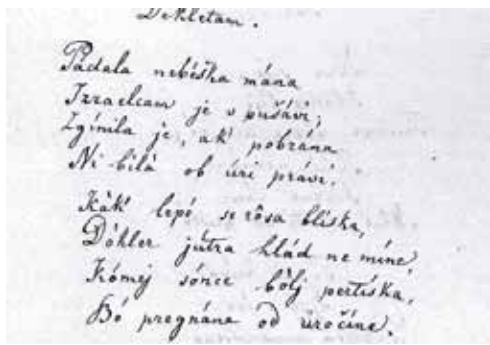 Dekletam.
Padala nebéška mána
Izraelcam je v pušávi,
Zginila je, ak' pobrána
Ni bilà ob úri právi.
Kàk' lepó se rôsa blíska,
Dôkler jútra hlád ne míne,
Kómej sónce bòlj pertíska,
Bó pregnáne od vročíne.